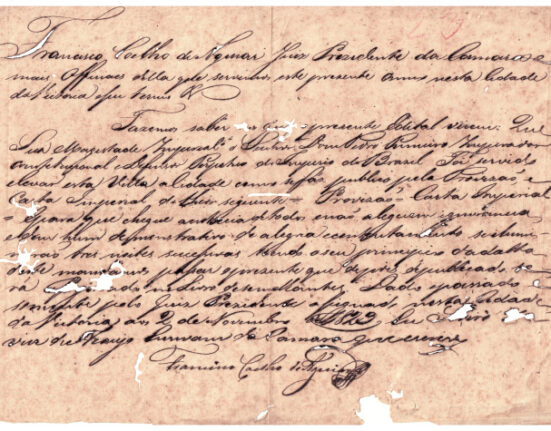 Francisco Coelho de Aguiar Juiz Presidente da Camara e
mais Officiaes della que servimos este presente anno nesta Cidade
da Victoria e seu termo &
Fazemos saber aos que o presente Edital virem: Que
Sua Magestade Imperial o Senhor Dom Pedro Primeiro Imperador
Constitucional e Defensor Perpetuo do Imperio do Brasil Foi servido
elevar esta Villa a Cidade como se fas publico pela Provisaõ, e
Carta Imperial do theor seguinte = Provisaõ = Carta Imperial
= para que chegue a noticia de todos e naõ aleguem ignorancia
e como hum demonstrativo de alegria e contentamento se
tres noites sucessivas tendo o seu principio da data
deste mandamos passar o presente que depois de publicado
Dado e passado
somente pelo Juiz Presidente assignado nesta Cidade
da Victoria aos 2 de Novembro 1823 Eu
Araujo Escrivam da Camara que escrevy
Francisco Coelho de Aguiar